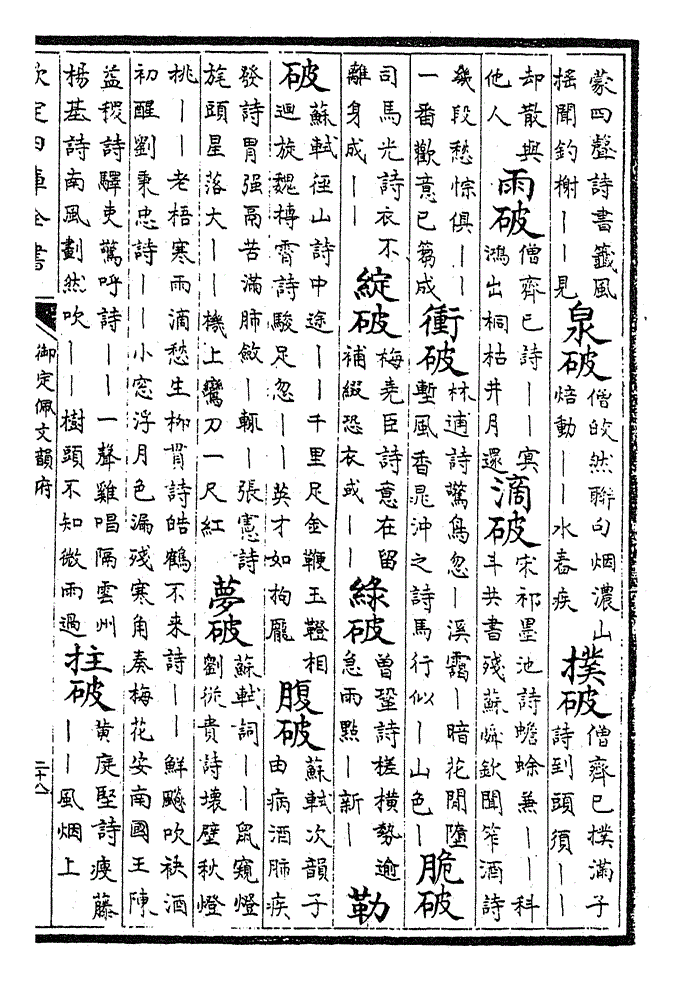 蒙四聲詩書籤風
搖聞釣榭丨丨見
泉破
僧皎然聯句烟濃山
焙動丨丨水舂疾
撲破
僧齊已撲滿子
詩到頭須丨丨
却散與
他人
雨破
僧齊已詩丨丨寞
鴻出桐枯井月還
滴破
宋祁墨池詩蟾蜍兼丨丨科
斗共書殘蘇舜欽聞笮酒詩
幾段愁悰俱丨丨
一番歡意已芻成
衝破
林逋詩驚鳥忽丨溪靄丨暗花閒墮
塹風香晁沖之詩馬行似丨山色丨
脆破
司馬光詩衣不
離身成丨丨
綻破
梅堯臣詩意在留
補綴恐衣或丨丨
綠破
曾鞏詩槎橫勢逾
急雨點丨新丨
勒
破
蘇軾徑山詩中途丨丨千里足金鞭玉鐙相
迴旋魏摶霄詩駿足忽丨丨英才如拘龎
腹破
蘇軾次韻子
由病酒肺疾
發詩胃强鬲苦滿肺斂丨輒丨張憲詩
旄頭星落大丨丨機上鸞刀一尺紅
夢破
蘇軾詞丨丨鼠窺燈
劉從貴詩壞壁秋燈
挑丨丨老梧寒雨滴愁生栁貫詩皓鶴不来詩丨丨鮮飈吹袂酒
初醒劉秉忠詩丨丨小窓浮月色漏殘寒角奏梅花安南國王陳
益稷詩驛吏驚呼詩丨丨一聲雞唱隔雲州
楊基詩南風劃然吹丨丨樹頭不知微雨過
拄破
黄庭堅詩瘦藤
丨丨風烟上
欽定四庫全書
御定佩文韻府
二十八